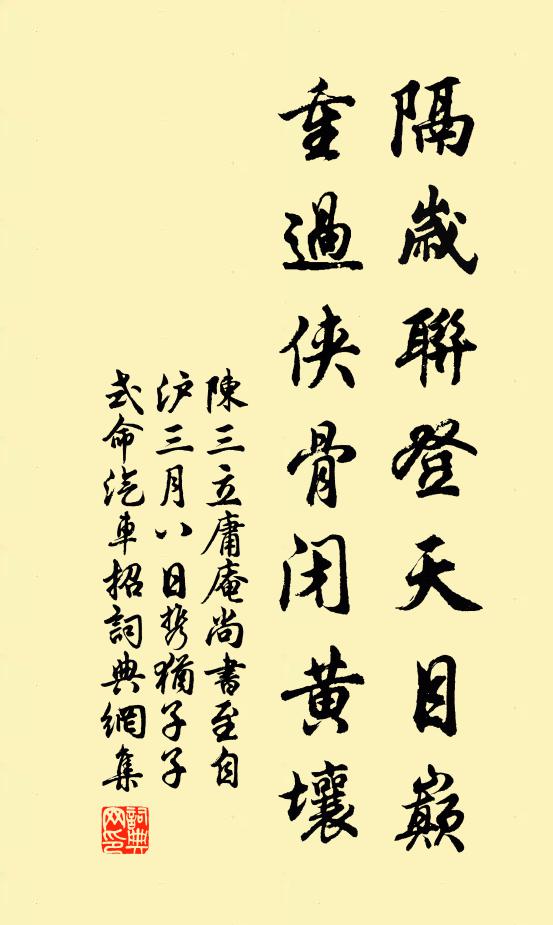 隔歲聯登天目巔
重過俠骨閉黃壤
陳三立庸庵尚書至自
沪三月八日携猶子子
式命汽車招詞典網集
詞典网印